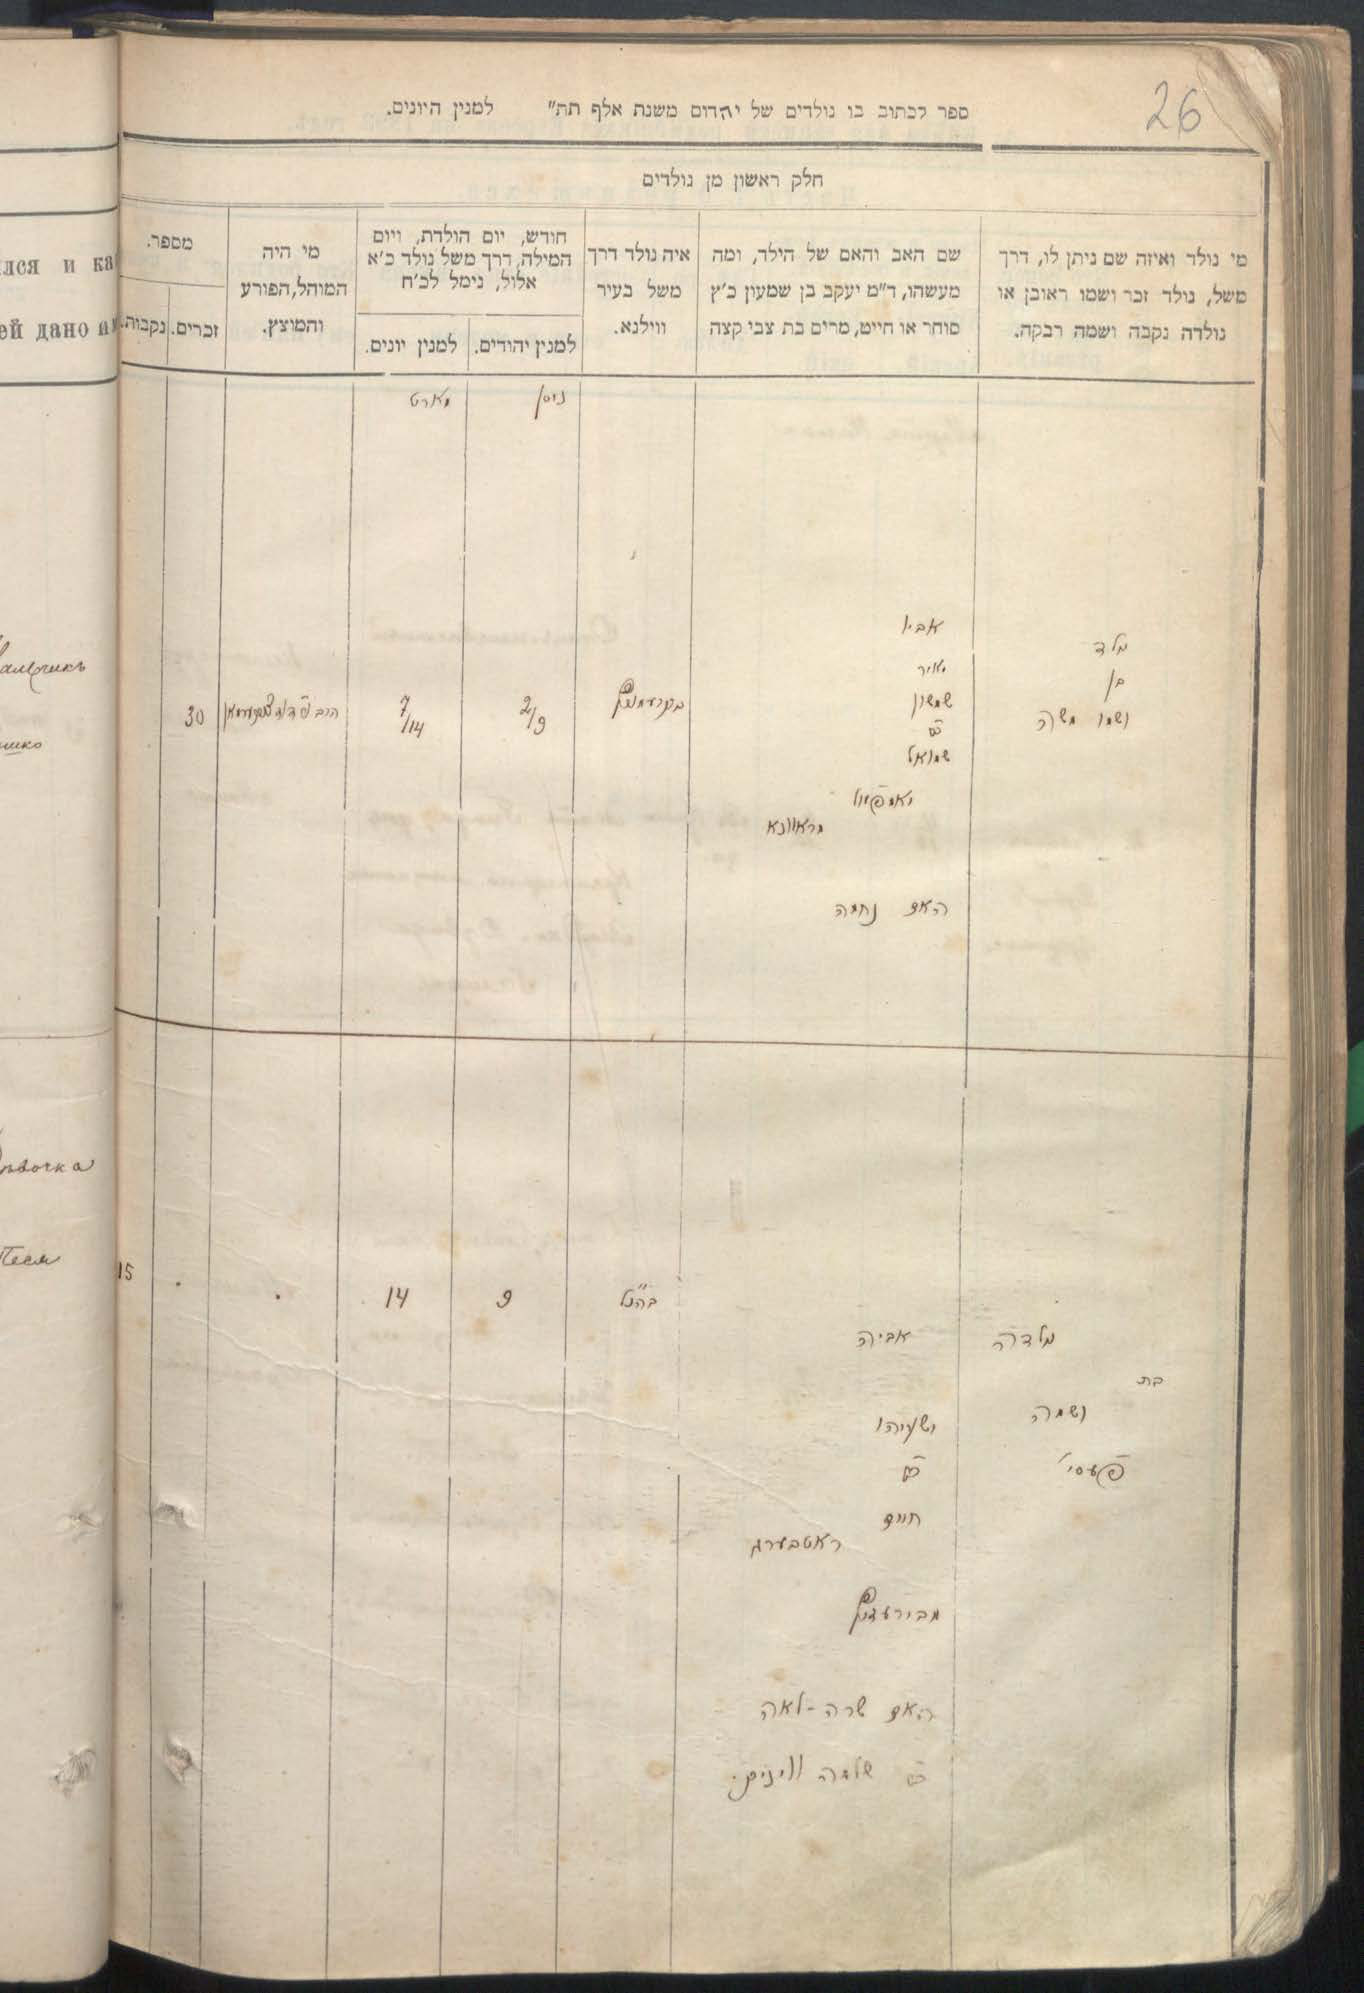 26
ספר לכתוב בו נולדים של יהדום משנת אלף תת״ למנין היונים.
חלק ראשון מן נולדים
מי נולד ואיזה שם ניתן לו, דרך
משל, נולד זכר ושמו ראובן או
נולדה נקבה ושמה רבקה.
שם האב והאם של הילד, ומה
מעשהו, ד״מ יעקב בן שמעון כ׳ץ
סוחר או חייט, מרים בת צבי קצה
איה נולד דרך
משל בעיר
ווילנא.
חודש, יום הולדת, ויום
המילה, דרך משל נולד כ׳א
אלול, נימל לכ׳ח
למנין יהודים.
למנין יונים.
מי היה
המוהל, הפורע
והמוצץ.
מספר.
זכרים.
נקבות.
лся и ка
ей дано и
ניסן
מארט
ילד
בן
ושמו משה
אביו
מאיר
שמשון
שמואל
מראוונא
האם נחמה
2/9
7/14
הרב
30
мальчикъ
шко
ילדה
בת
ושמה
פעסי
אביה
ישעיהו
חיים
ראטבערג
האם שרה-לאה
שלמה
בהנ״ל
9
14
15
ѣвочка
Песя